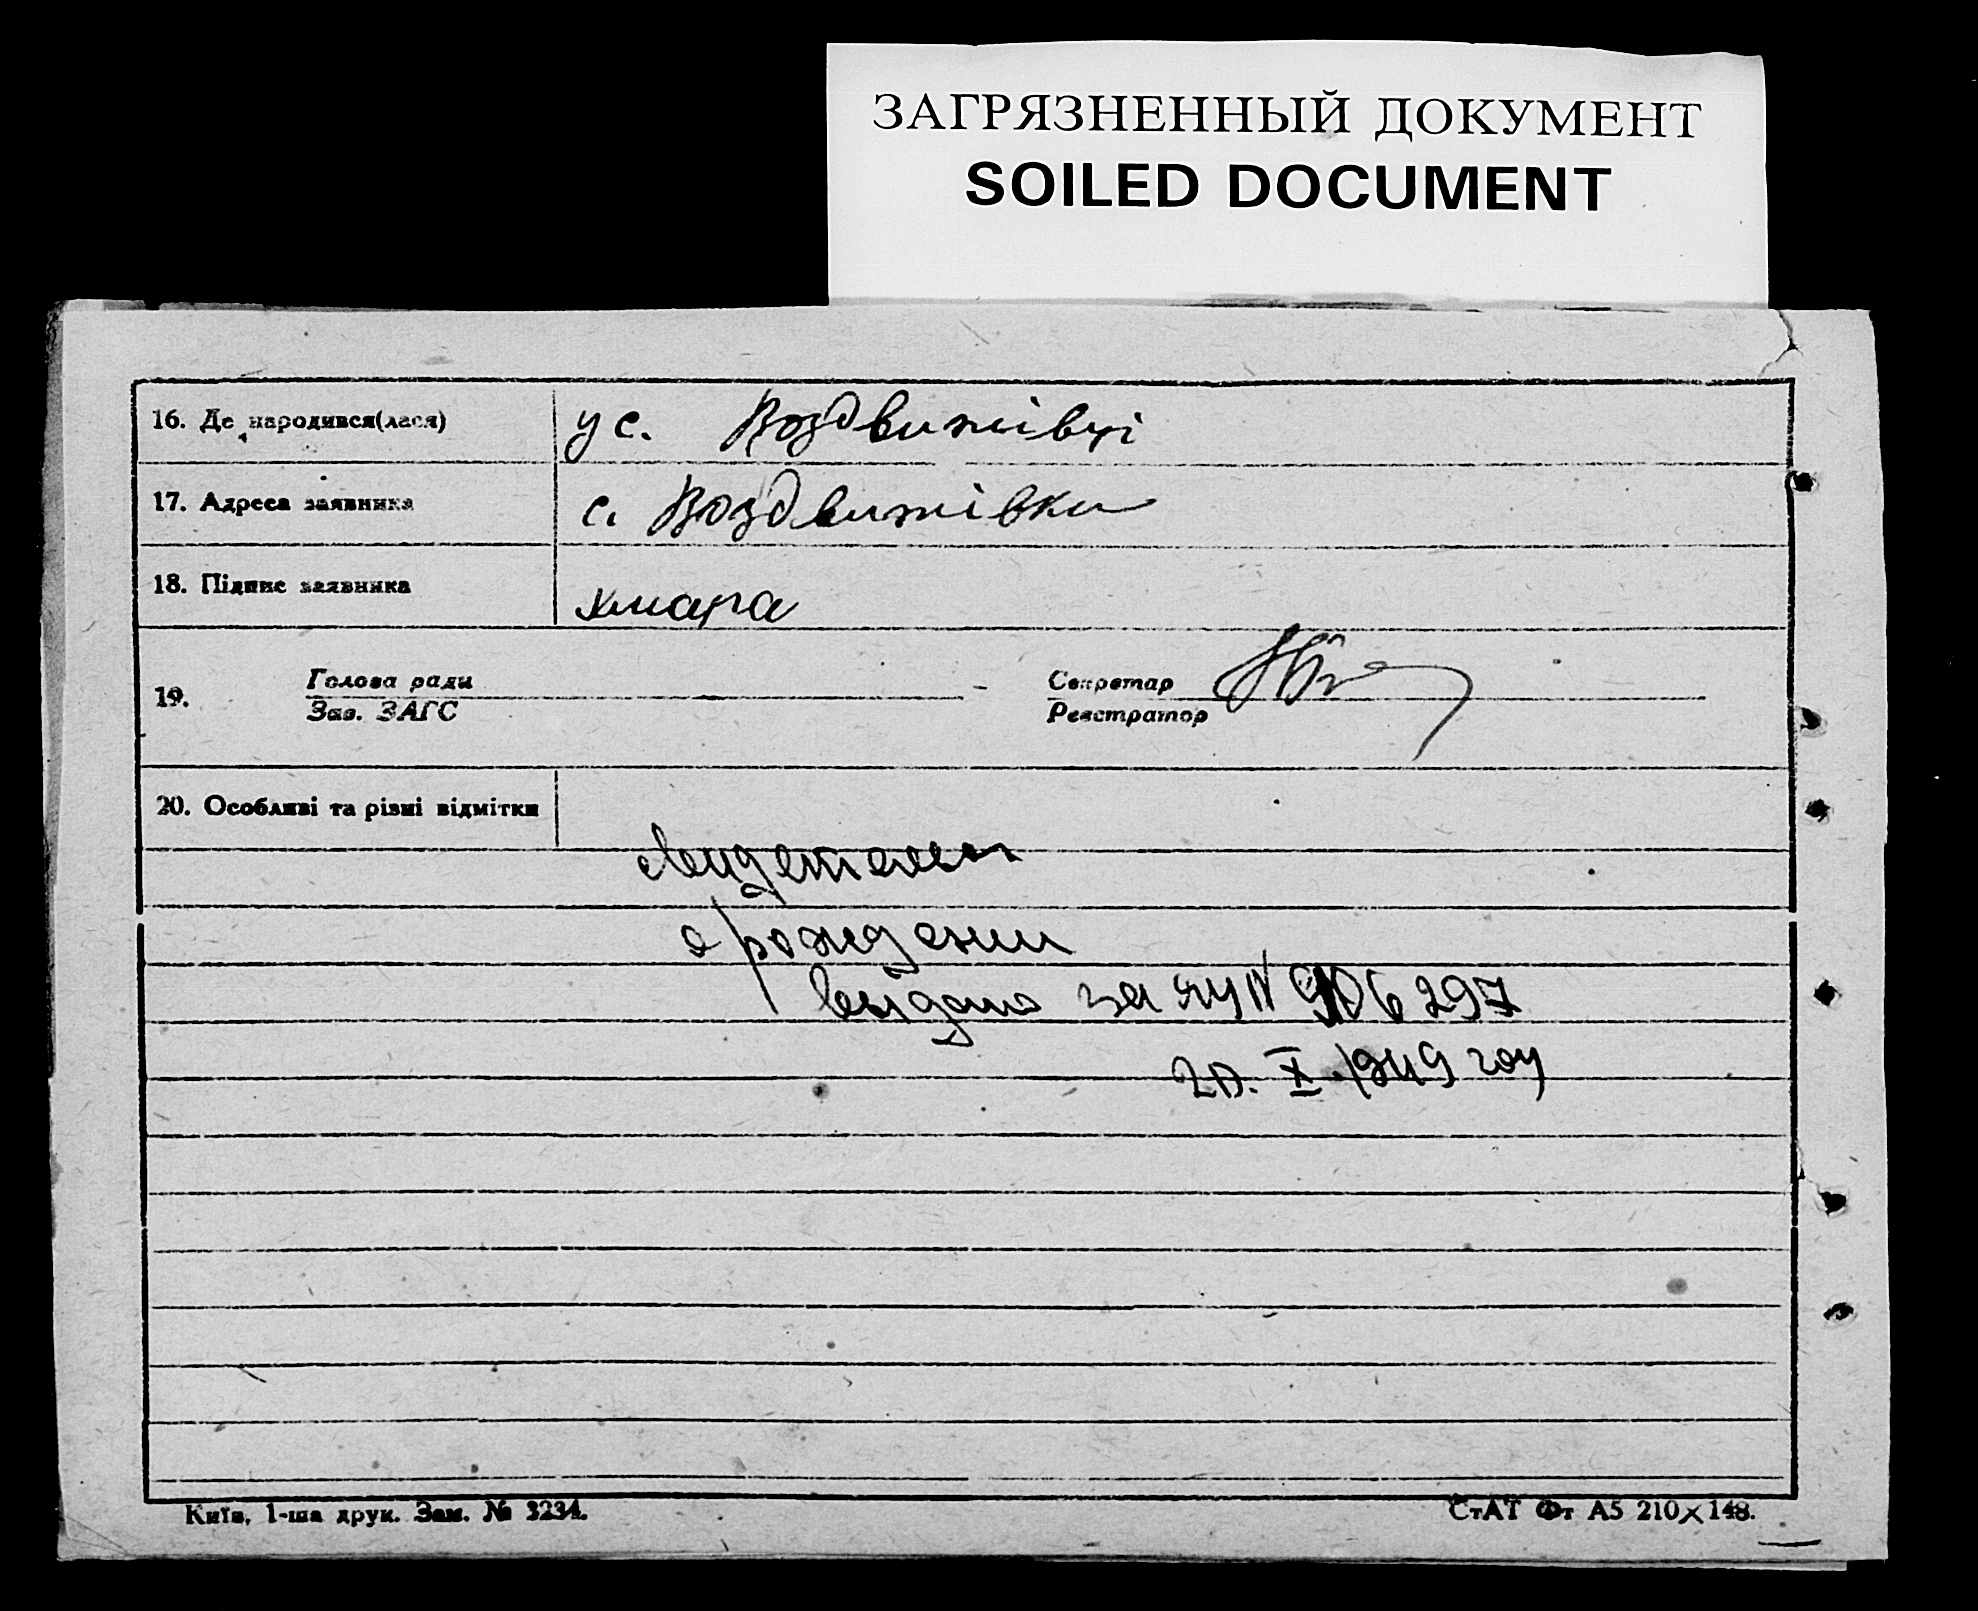 ЗАГРЯЗНЕННЫЙ ДОКУМЕНТ
SOILED DOCUMENT
16. Де народився(лася) у с. Воздвижівці
17. Адреса заявника с. Воздвижівки
18. Підпис заявника хмара
19. Голова ради Секретар
Зав. ЗАГС Реєстратор
20. Особливі та різні відмітки
свидетельст
о рождении
выдано за ЯУ N 906297
20. X. 1949 году
Київ, 1-ша друк. Зам. № 3234.
СтАТ Фт А5 210×148.